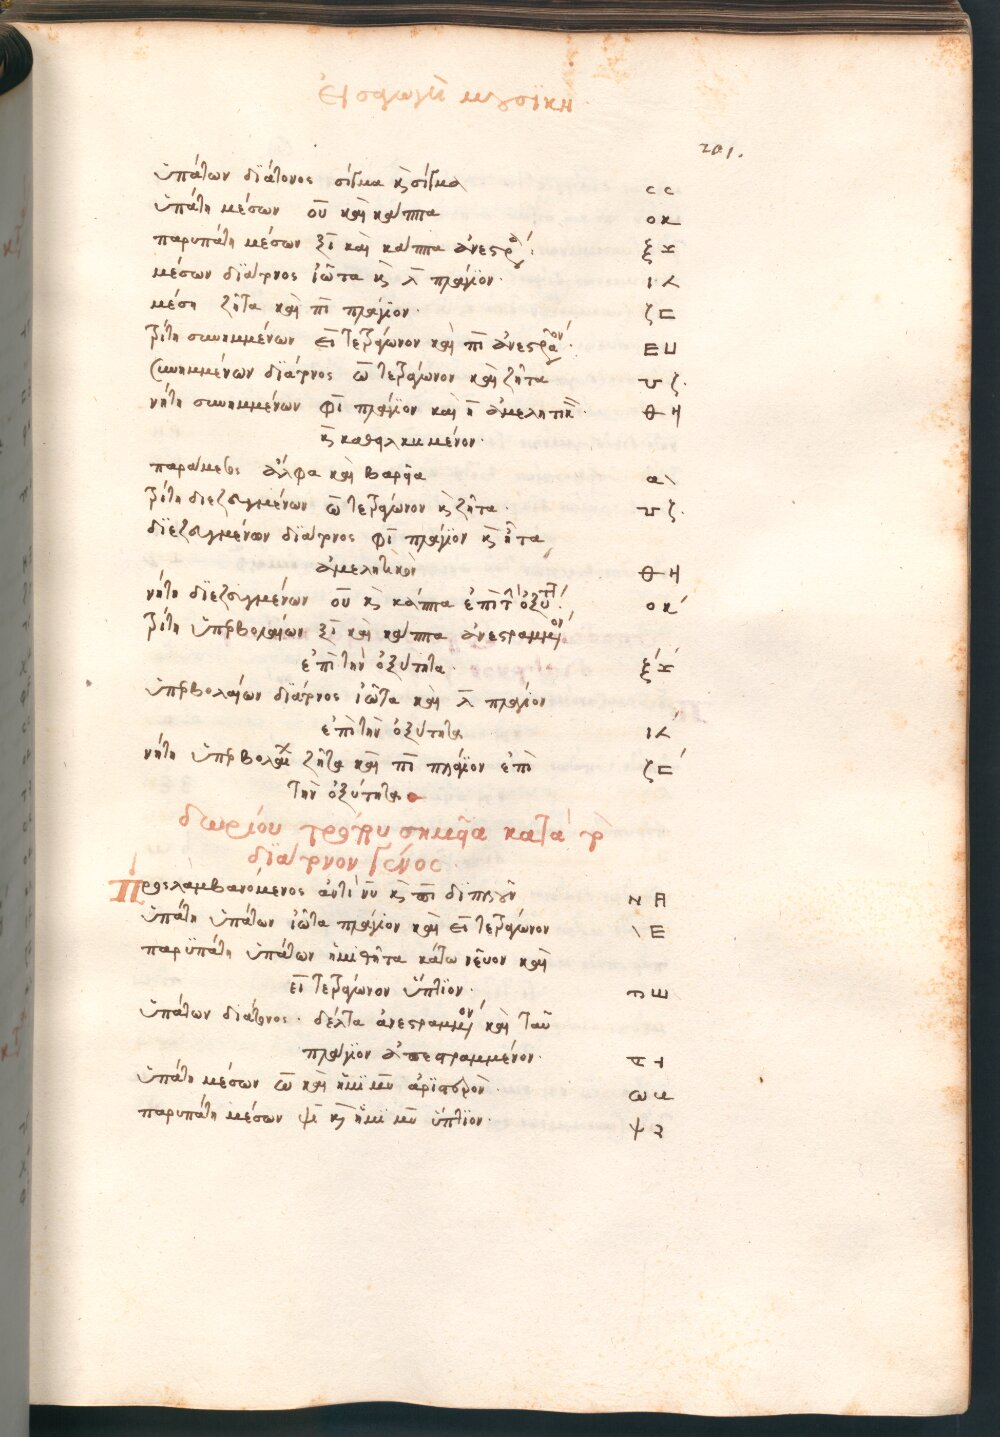 εἰσαγωγὴ μουσικὴ
201.
ὑπάτων διάτονος σίγμα κ̀ σίγμα c c
ὑπάτη μέσων οὖ καὶ κάππα ο κ
παρυπάτη μέσων ξῖ καὶ κάππα ἀνεστρ
μέσων διάτονος ἰῶτα κ̀ λ̄ πλάγιον· ι
μέση ζῆτα καὶ πῖ πλάγιον· ζ
τρίτη συνημμένων εῖ τετράγωνον καὶ πῖ ἀνεστρα^ον· Ε ⊔
συνημμένων διάτονος ω̄ τετράγωνον καὶ ζῆτα ζ·
νήτη συνημμένων φῖ πλάγιον καὶ η̄ ἀμελητικὸν
κ̀ καθειλκυσμένον·
παράμεσος ἄλφα καὶ βαρεῖα α \
τρίτη διεζευγμένων ω̄ τετράγωνον κ̀ ζῆτα· ζ·
διεζευγμένων διάτονος φῖ πλάγιον κ̀ ἦτα
ἀμελητικὸν
νήτη διεζευγμένων οὖ κ̀ κάππα ἐπὶ τ̀ ὀξύτητα· ο κ′
τρίτη ὑπερβολαίων ξῖ καὶ κάππα ἀνεστραμμ^ον
ἐπὶ τὴν ὀξύτητα·
ὑπερβολαίων διάτονος ἰῶτα καὶ λ̄ πλάγιον
ἐπὶ τὴν ὀξύτητα
νήτη ὑπερβολαίων ζῆτα καὶ πῖ πλάγιον ἐπὶ
τὴν ὀξύτητα
δωρίου τρόπου σημεῖα κατὰ τὸ
διάτονον γένος·
Προσλαμβανόμενος κ̀ πῖ
ὑπάτη ὑπάτων ἰῶτα πλάγιον καὶ εῖ τετράγωνον \ Ε
παρυπάτη ὑπάτων ἡμίθητα κάτω νεῦον καὶ
εῖ τετράγωνον ὕπτιον·
ὑπάτων διάτονος· δέλτα ἀνεστραμμ^ον καὶ ταῦ
πλάγιον ἀπεστραμμένον·
ὑπάτη μέσων ω̄ καὶ ἥμισυ μῦ ἀριστερὸν· ω
παρυπάτη μέσων ψῖ κ̀ ἥμισυ μῦ ὕπτιον· ψ